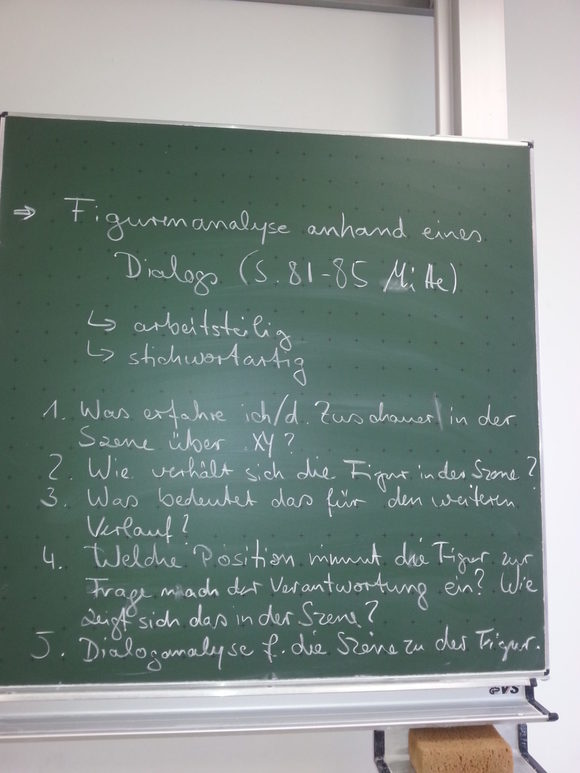 ⇒ Figurenanalyse anhand eines
Dialogs (S. 81-85 Mitte)
↳ arbeitsteilig
↳ stichwortartig
1. Was erfahre ich/d. Zuschauer in der
Szene über XY?
2. Wie verhält sich die Figur in der Szene?
3. Was bedeutet das für den weiteren
Verlauf?
4. Welche Position nimmt die Figur zur
Frage nach der Verantwortung ein? Wie
zeigt sich das in der Szene?
5. Dialoganalyse f. die Szene zu der Figur.
GVS